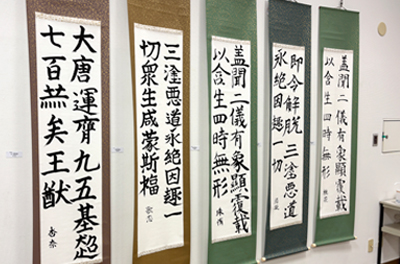 大唐運齊九五基超
七百赫矣王猷
杏奈
三塗悪道永絶因趣一
切衆生咸蒙斯福
盖聞二儀有象顯覆載
以含生四時無形
即令解脱三塗悪道
永絶因趣一切
盖聞二儀有象顯覆載
以含生四時無形